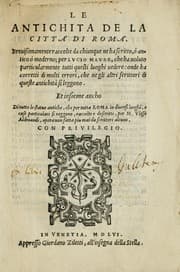 LE
ANTICHITA DE LA
CITTÀ DI ROMA.
Breuissimamente raccolte da chiunque ne ha scritto, ò antico
ò moderno; per LVCIO MAVRO, che ha voluto
particularmente tutti questi luoghi vedere: onde ha
corretti di molti errori, che ne gli altri scrittori di
queste antichità si leggono.
Et insieme ancho
Di tutte le statue antiche, che per tutta ROMA in diuersi luoghi, e
case particolari si veggono, raccolte e descritte, per M. Vlisse
Aldroandi, opera non fatta piu mai da scrittore alcuno.
CON PRIVILEGIO.
IN VENETIA, M D LVI.
Appresso Giordano Ziletti, all'insegna della Stella.